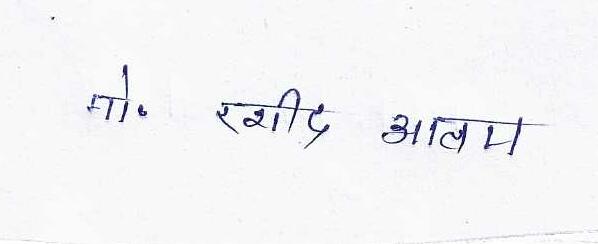 मो. रशीद आलम